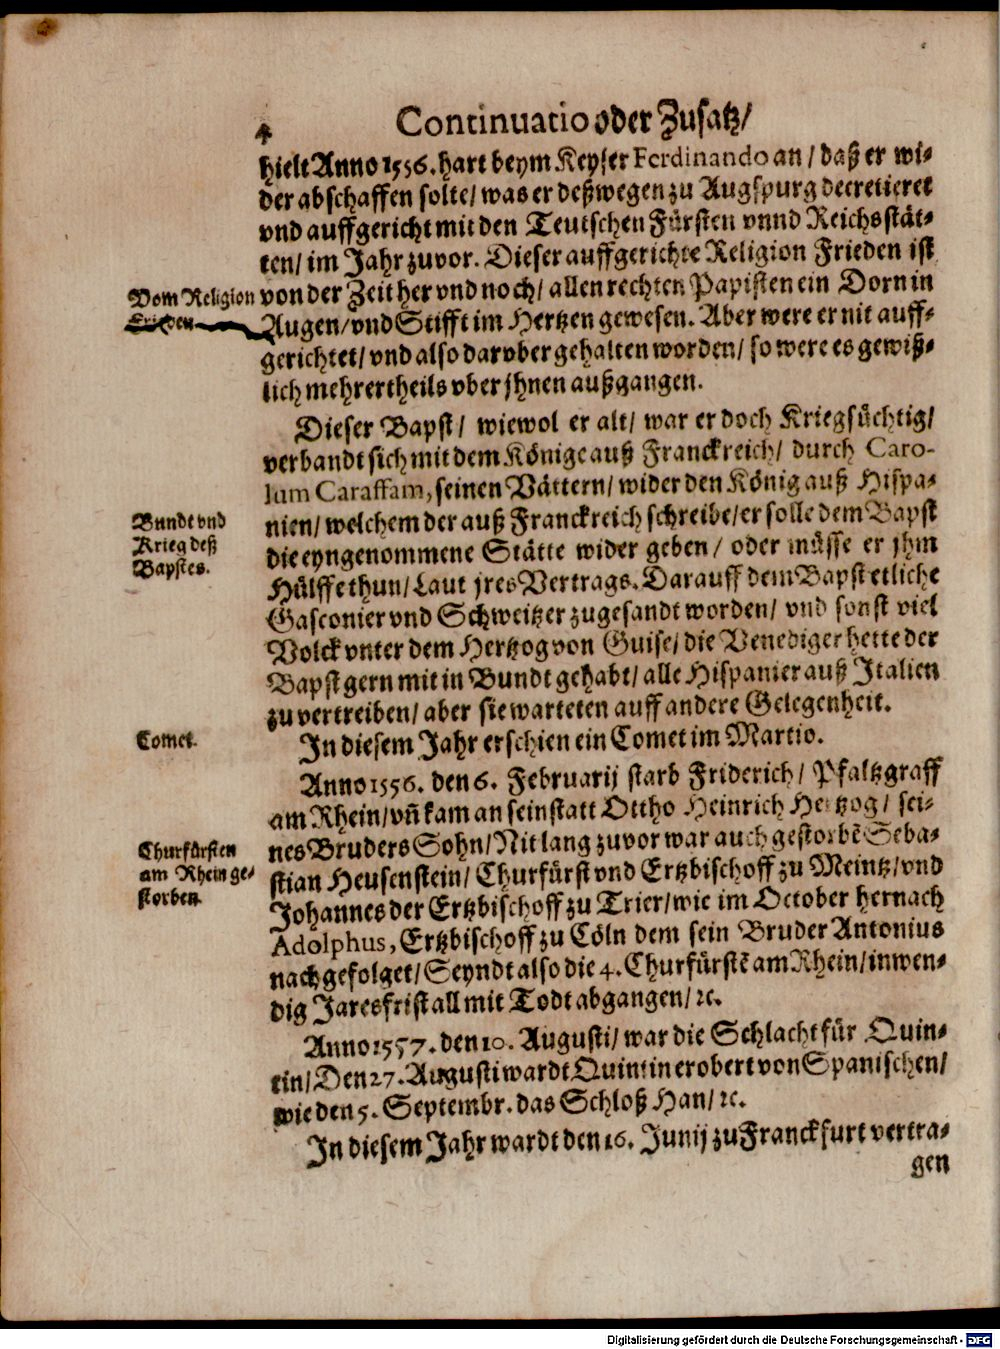 4 Continuatio oder Zusatz/
hielt Anno 1556. hart beym Keyser Ferdinando an/ daß er wi-
der abschaffen solte/ was er deßwegen zu Augspurg decretieret
vnd auffgericht mit den Teutschen Fürsten vnnd Reichsstät-
ten/ im Jahr zuvor. Dieser auffgerichte Religion Frieden ist
Vom Religion
Frieden
von der Zeit her vnd noch/ allen rechten Papisten ein Dorn in
Augen/ vnd Stifft im Hertzen gewesen. Aber were er nit auff-
gerichtet/ vnd also darvber gehalten worden/ so were es gewiß-
lich mehrertheils vber jhnen außgangen.
Dieser Bapst/ wiewol er alt/ war er doch Kriegsüchtig/
verbandt sich mit dem Könige auß Franckreich/ durch Caro-
lum Caraffam, seinen Vättern/ wider den König auß Hispa-
Bundt vnd
Krieg deß
Bapstes.
nien/ welchem der auß Franckreich schreibe/ er solle dem Bapst
die eyngenommene Stätte wider geben/ oder müsse er jhm
Hülffe thun/ Laut jres Vertrags. Darauff dem Bapst etliche
Gasconier vnd Schweitzer zugesandt worden/ vnd sonst viel
Volck vnter dem Hertzog von Guise/ die Venediger hette der
Bapst gern mit in Bundt gehabt/ alle Hispanier auß Italien
zu vertreiben/ aber sie warteten auff andere Gelegenheit.
Comet.
In diesem Jahr erschien ein Comet im Martio.
Anno 1556. den 6. Februarij starb Friderich/ Pfaltzgraff
am Rhein/ vñ kam an sein statt Ottho Heinrich Hertzog/ sei-
Churfürsten
am Rhein ge-
storben.
nes Bruders Sohn/ Nit lang zuvor war auch gestorbē Seba-
stian Heusenstein/ Churfürst vnd Ertzbischoff zu Meintz/ vnd
Johannes der Ertzbischoff zu Trier/ wie im October hernach
Adolphus, Ertzbischoff zu Cöln dem sein Bruder Antonius
nachgefolget/ Seyndt also die 4. Churfürstē am Rhein/ inwen-
dig Jaresfrist all mit Todt abgangen/ ꝛc.
Anno 1557. den 10. Augusti/ war die Schlacht für Quin-
tin/ Den 27. Augusti wardt Quintin erobert von Spanischen/
wie den 5. Septembr. das Schloß Han/ ꝛc.
In diesem Jahr wardt den 16. Junij zu Franckfurt vertra-
gen
Digitalisierung gefördert durch die Deutsche Forschungsgemeinschaft - DFG